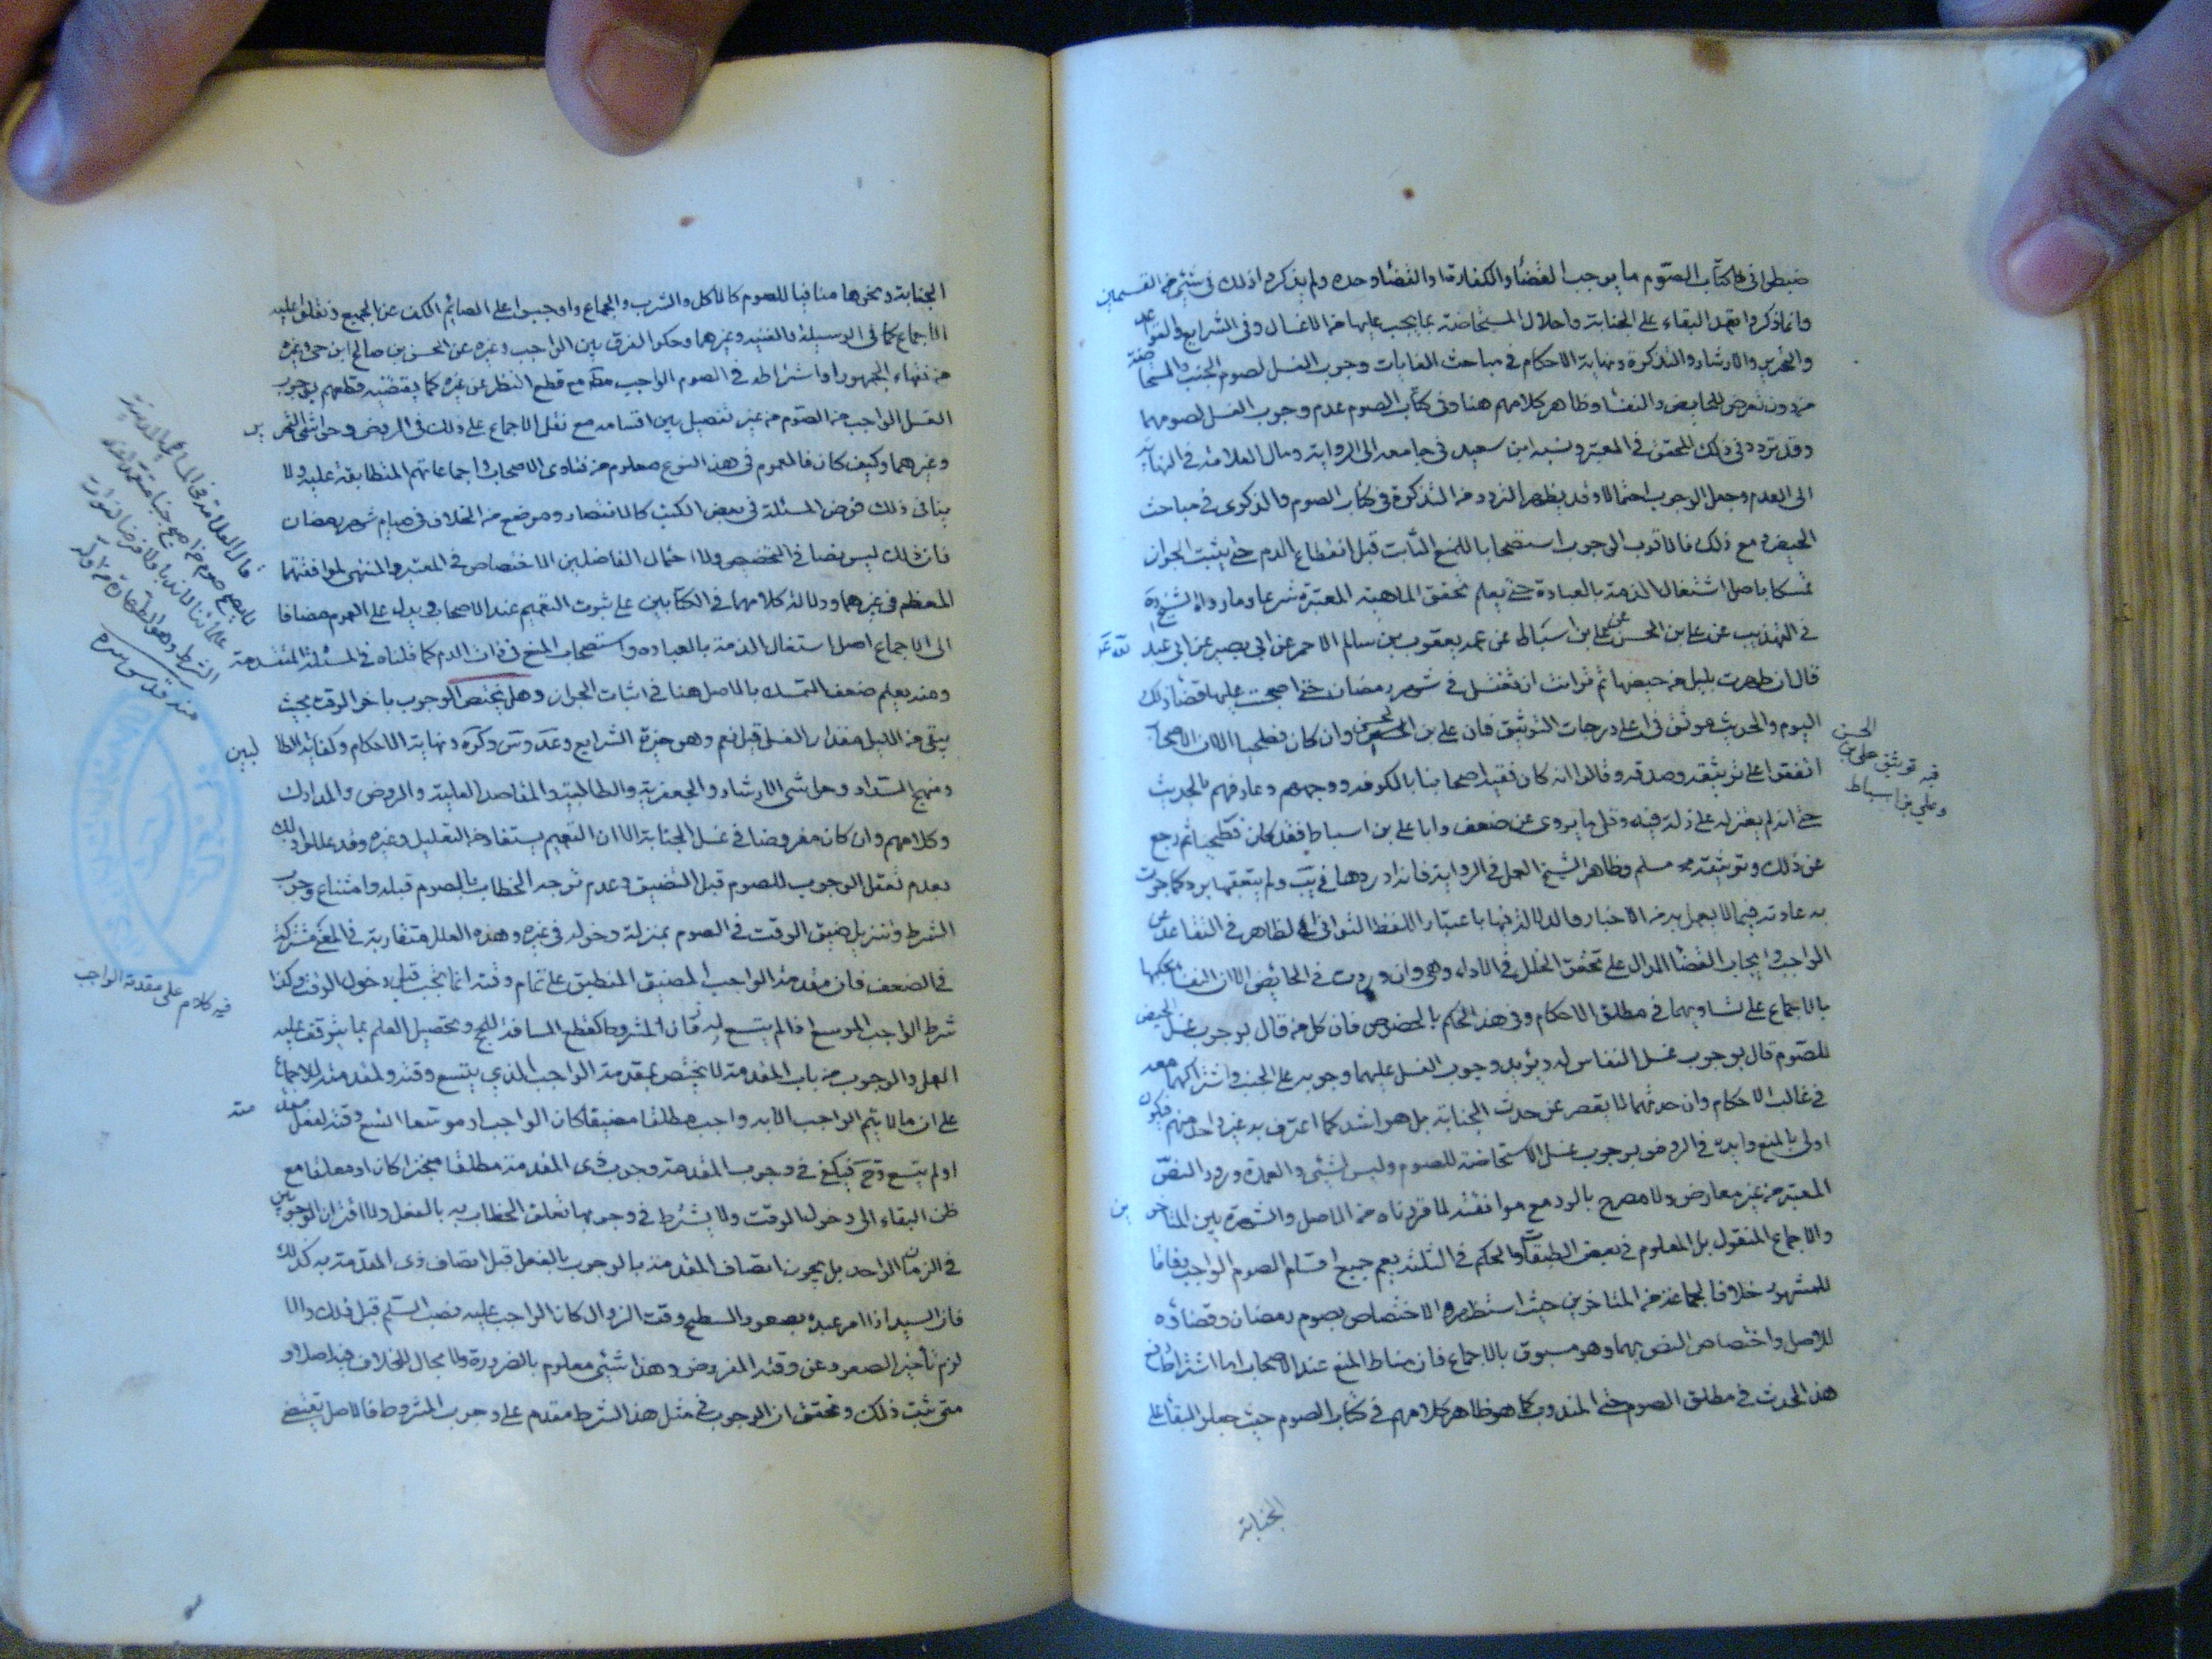 ضبطوا في كتاب الصوم ما يوجب القضاء والكفارة او القضاء وحده ولم يذكروا ذلك في شيء من القسمين
وانما ذكروا تعمد البقاء على الجنابة واخلال المستحاضة بما يجب عليها من الاغسال وفي الشرايع والقواعد
والتحرير والارشاد والتذكرة ونهاية الاحكام في مباحث الغايات وجوب الغسل لصوم الجنب والمستحاضة
من دون تعرض للحايض والنفساء وظاهر كلامهم هنا وفي كتاب الصوم عدم وجوب الغسل لصومهما
وقد تردد في ذلك المحقق في المعتبر ونسبه ابن سعيد في جامعه الى الرواية ومال العلامة في النهاية
الى العدم وجعل الوجوب احتمالا وقد يظهر التردد من التذكرة في كتاب الصوم والذكرى في مباحث
الحيض ومع ذلك فالاقرب الوجوب استصحابا للمنع الثابت قبل انقطاع الدم حتى يثبت الجواز
تمسكا باصل اشتغال الذمة بالعبادة حتى يعلم تحقق الماهية المعتبرة شرعا وما رواه الشيخ ره
في التهذيب عن علي بن الحسن عن علي بن اسباط عن عمه يعقوب بن سالم الاحمر عن ابي بصير عن ابي عبد
قال ان طهرت بليل من حيضها ثم توانت ان تغتسل في شهر رمضان حتى اصبحت عليها قضاء ذلك
اليوم والحديث موثق في اعلى درجات التوثيق فان علي بن الحسن وان كان فطحيا الا ان الاصحاب
اتفقوا على توثيقه وصدقه وقالوا انه كان فقيه اصحابنا بالكوفه ووجههم وعارفهم بالحديث
حتى انه لم يعثر له على زلة فيه وقل ما يروى عن ضعيف واما علي بن اسباط فقد كان فطحيا ثم رجع
عن ذلك وتوثيقه مسلم وظاهر الشيخ العمل في الرواية فانه اوردها في يب ولم يتعقبها برد كما جرت
به عادته فيما لا يعمل به من الاخبار والدلالة فيها باعتبار اللفظ التواني الظاهر في التقاعد عن
الواجب وايجاب القضاء الدال على تحقق الخلل في الاداء وهي وان وردت في الحائض الا ان النفساء بحكمها
بالاجماع على تساويهما في مطلق الاحكام وفي هذا الحكم بالخصوص فان كل من قال بوجوب غسل الحيض
للصوم قال بوجوب غسل النفاس له ويؤيده وجوب الغسل عليهما وجوبه على الجنب واشتراكهما معه
في غالب الاحكام وان حدثهما لا يقصر عن حدث الجنابة بل هو اشد كما اعترف به غير واحد منهم فيكون
اولى بالمنع وايده في الروض بوجوب غسل الاستحاضة للصوم وليس بشيء والعمدة ورود النص
المعتبر من غير معارض ولا مصرح بالرد مع موافقته لما قررناه من الاصل والشهرة بين المتاخرين
والاجماع المنقول بل المعلوم في بعض الطبقات والحكم في الثلثة يعم جميع اقسام الصوم الواجب وفاقا
للمشهور خلافا لجماعة من المتاخرين حيث استظهروا الاختصاص بصوم رمضان وقضائه
للاصل واختصاص النص بهما وهو مسبوق بالاجماع فان مناط المنع عند الاصحاب اما اشتراط رفع
هذا الحدث في مطلق الصوم حتى المندوب كما هو ظاهر كلامهم في كتاب الصوم حيث جعلوا البقاء على
الجنابة
فيه توثيق علي بن الحسن
وعلي بن اسباط
الجنابة ونحوها منافيا للصوم كالاكل والشرب والجماع واوجبوا على الصائم الكف عن الجميع ونقلوا عليه
الاجماع كما في الوسيلة والغنيه وغيرهما وحكوا الفرق بين الواجب وغيره عن الحسن بن صالح ابن حي وغيره
من فقهاء الجمهور او اشتراطه في الصوم الواجب مطلقا مع قطع النظر عن غيره كما يقتضيه قطعهم بوجوب
الغسل الواجب من الصوم من غير تفصيل بين اقسامه مع نقل الاجماع على ذلك في الروض وحواشي التحرير
وغيرهما وكيف كان فالعموم في هذا النوع معلوم من فتاوى الاصحاب واجماعاتهم المتطابقة عليه ولا
ينافي ذلك فرض المسئلة في بعض الكتب كالاقتصار وموضع من الخلاف في صيام شهر رمضان
فان ذلك ليس نصا في التخصيص ولا احتمال الفاضلين الاختصاص في المعتبر والمنتهى لموافقتهما
المعظم في غيرهما ودلالة كلامهما في الكتابين على ثبوت التعميم عند الاصحاب ويدل على العموم مضافا
الى الاجماع اصل اشتغال الذمة بالعباده واستصحاب المنع في ذات الدم كما قلناه في المسئلة المتقدمة
ومنه يعلم ضعف التمسك بالاصل هنا في اثبات الجواز وهل يختص الوجوب باخر الوقت بحيث
يبقى من الليل مقدار الغسل قيل نعم وهو خيرة الشرايع وعد وس وكره ونهاية الاحكام وكفاية الطالبين
ومنهج السداد وحواشي الارشاد والجعفرية والطالبية والمقاصد العلية والروض والمدارك
وكلامهم وان كان مفروضا في غسل الجنابة الا ان التعميم يستفاد من التعليل وغيره وقد عللوا ذلك
بعدم تعقل الوجوب للصوم قبل التضيق وعدم توجه الخطاب بالصوم قبله وامتناع وجوب
الشرط وتنزيل ضيق الوقت في الصوم بمنزلة دخوله في غيره وهذه العلل متقاربة في المعنى مشتركة
في الضعف فان مقدمة الواجب المضيق المنطبق على تمام وقته انما تجب قبل دخول الوقت وكذا
شرط الواجب الموسع اذا لم يتسع له وقت المشروط كقطع المسافة للحج وتحصيل العلم بما يتوقف عليه
العمل والوجوب من باب المقدمة لا يختص بمقدمة الواجب الذي يتسع وقته ولمقدمته للاجماع
على ان ما لا يتم الواجب الا به واجب مطلقا مضيقا كان الواجب او موسعا اتسع وقته لفعل مقدمته
او لم يتسع وح فيكفي في وجوب المقدمة وجوب ذي المقدمة مطلقا منجزا كان او معلقا مع
ظن البقاء الى دخول الوقت ولا يشترط في وجوبها تعلق الخطاب به بالفعل ولا اقتران الوجوبين
في الزمان الواحد بل يجوز اتصاف المقدمة بالوجوب بالفعل قبل اتصاف ذي المقدمة به كذلك
فان السيد اذا امر عبده بصعود السطح وقت الزوال كان الواجب عليه نصب السلم قبل ذلك والا
لزم تأخير الصعود عن وقته المفروض وهذا شيء معلوم بالضرورة ولا مجال للخلاف فيه اصلا و
متى ثبت ذلك وتحقق ان الوجوب في مثل هذا الشرط مقدم على وجوب المشروط فالاصل يقتضي
فيه كلام على مقدمة الواجب